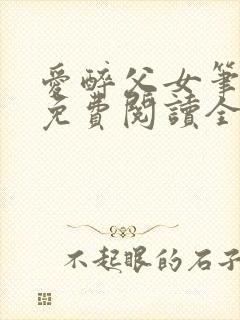 愛醉父女筆
免費閱讀全
不起眼的石子